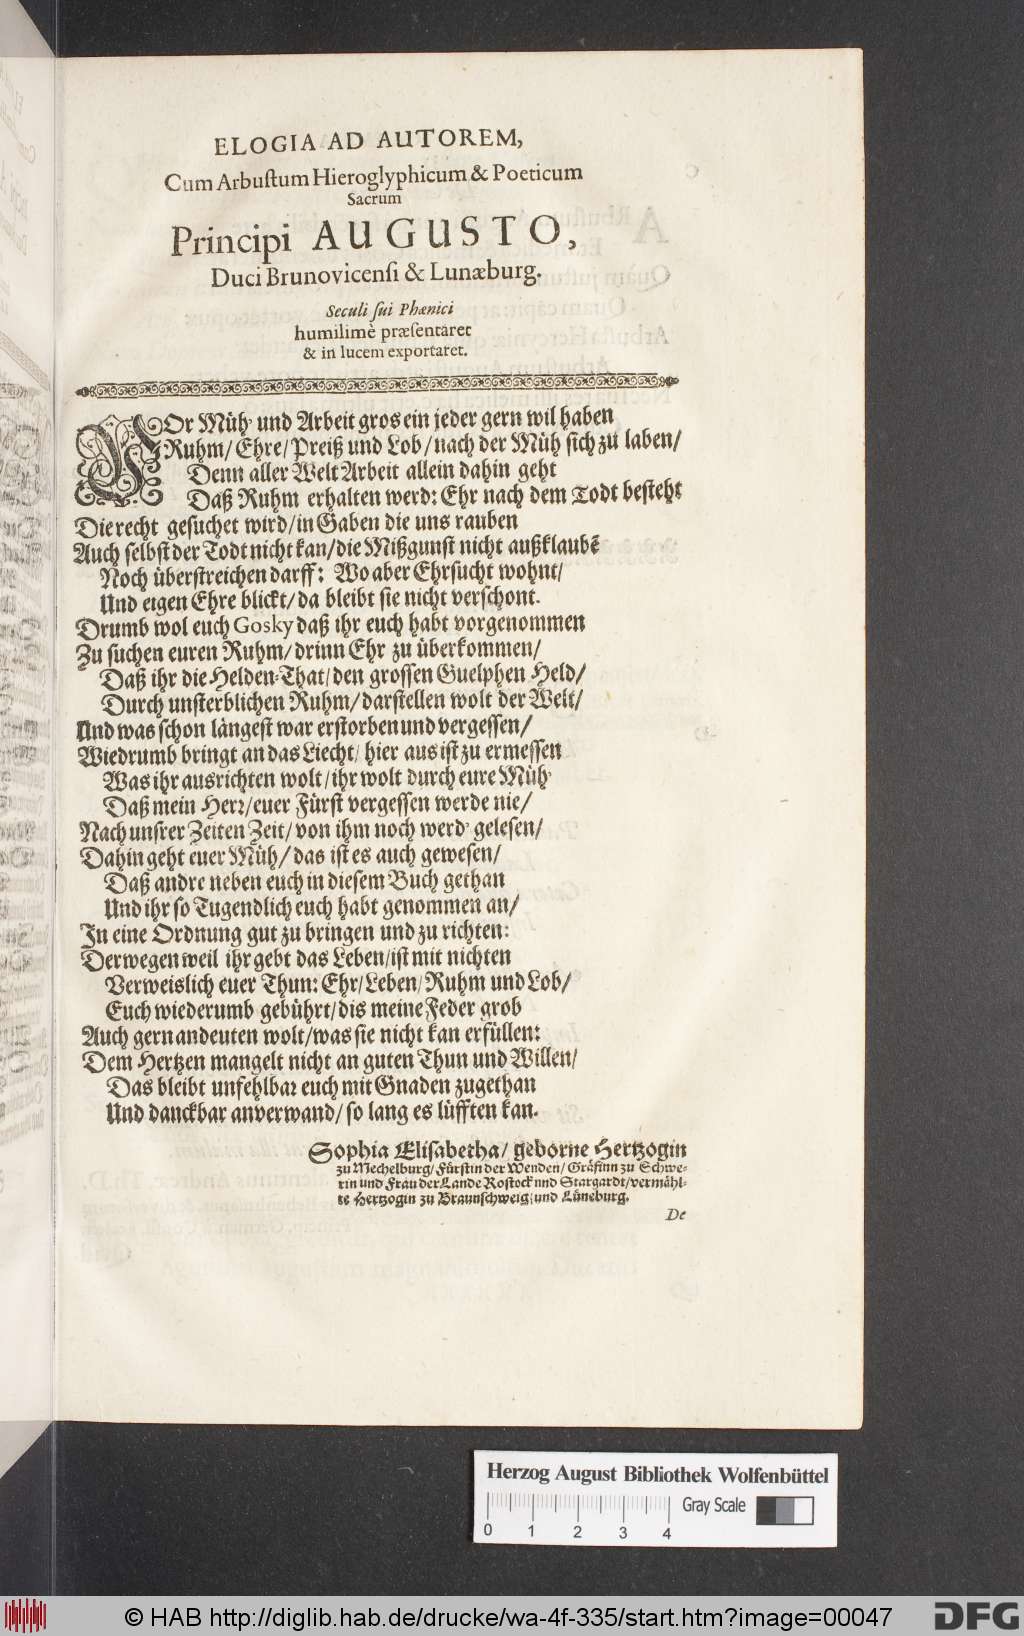 ELOGIA AD AUTOREM,
Cum Arbuſtum Hieroglyphicum & Poeticum
Sacrum
Principi AUGUSTO,
Duci Brunovicenſi & Lunæburg.
Seculi ſui Phœnici
humilimè præſentaret
& in lucem exportaret.
VOr Müh' und Arbeit gros ein jeder gern wil haben
Ruhm/ Ehre/ Preiß und Lob/ nach der Müh ſich zu laben/
Denn aller Welt Arbeit allein dahin geht
Daß Ruhm erhalten werd: Ehr nach dem Todt beſteht
Die recht geſuchet wird/ in Gaben die uns rauben
Auch ſelbſt der Todt nicht kan/ die Mißgunſt nicht außklaubẽ
Noch überſtreichen darff: Wo aber Ehrſucht wohnt/
Und eigen Ehre blickt/ da bleibt ſie nicht verſchont.
Drumb wol euch Gosky daß ihr euch habt vorgenommen
Zu ſuchen euren Ruhm/ drinn Ehr zu überkommen/
Daß ihr die Helden-That/ den groſſen Guelphen Held/
Durch unſterblichen Ruhm/ darſtellen wolt der Welt/
Und was ſchon längeſt war erſtorben und vergeſſen/
Wiedrumb bringt an das Liecht/ hier aus iſt zu ermeſſen
Was ihr ausrichten wolt/ ihr wolt durch eure Müh'
Daß mein Herr/ euer Fürſt vergeſſen werde nie/
Nach unſrer Zeiten Zeit/ von ihm noch werd' geleſen/
Dahin geht euer Müh/ das iſt es auch geweſen/
Daß andre neben euch in dieſem Buch gethan
Und ihr ſo Tugendlich euch habt genommen an/
In eine Ordnung gut zu bringen und zu richten:
Derwegen weil ihr gebt das Leben/ iſt mit nichten
Verweislich euer Thun: Ehr/ Leben/ Ruhm und Lob/
Euch wiederumb gebührt/ dis meine Feder grob
Auch gern andeuten wolt/ was ſie nicht kan erfüllen:
Dem Hertzen mangelt nicht an guten Thun und Willen/
Das bleibt unfehlbar euch mit Gnaden zugethan
Und danckbar anverwand/ ſo lang es lüfften kan.
Sophia Eliſabetha/ geborne Hertzogin
zu Mechelburg/ Fürſtin der Wenden/ Gräfinn zu Schwe-
rin und Frau der Lande Roſtock und Stargardt/ vermähl-
te Hertzogin zu Braunſchweig und Lüneburg.
De
Herzog August Bibliothek Wolfenbüttel
Gray Scale
0 1 2 3 4
© HAB http://diglib.hab.de/drucke/wa-4f-335/start.htm?image=00047
DFG